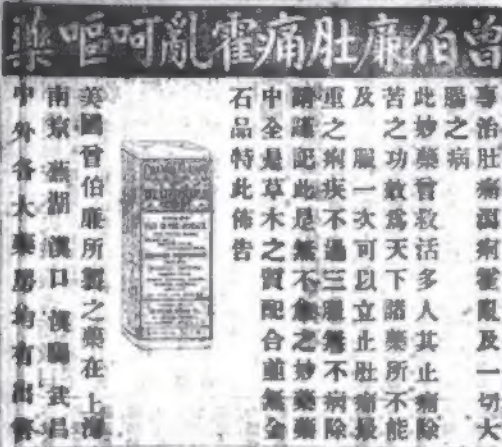 曾伯廉肚痛霍亂呵嘔藥
專治肚痛瀉痢霍亂及一切大
腸之病
此妙藥曾救活多人其止痛除
苦之功效為天下諸藥所不能
及 服一次可以立止肚痛最
重之痢疾不過三服無不病除
請謹記此是無不之妙藥藥
中全是草木之質配合並無金
石品特此佈告
英國曾伯廉所製之藥在上海
南京 蕪湖 漢口 漢陽 武昌
中外各大藥房均有出售